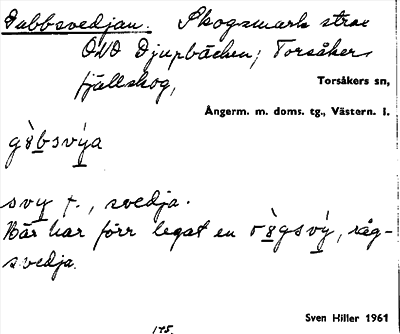 Gabbsvedjan. Skogsmark strax
ONO Djupbäcken; Torsåkers
fjällskog,
Torsåkers sn,
Ångerm. m. doms. tg., Västern. l.
gàbsvýa
svy f., svedja.
Här har förr legat en rågsvý, råg-
svedja.
Sven Hiller 1961
175.